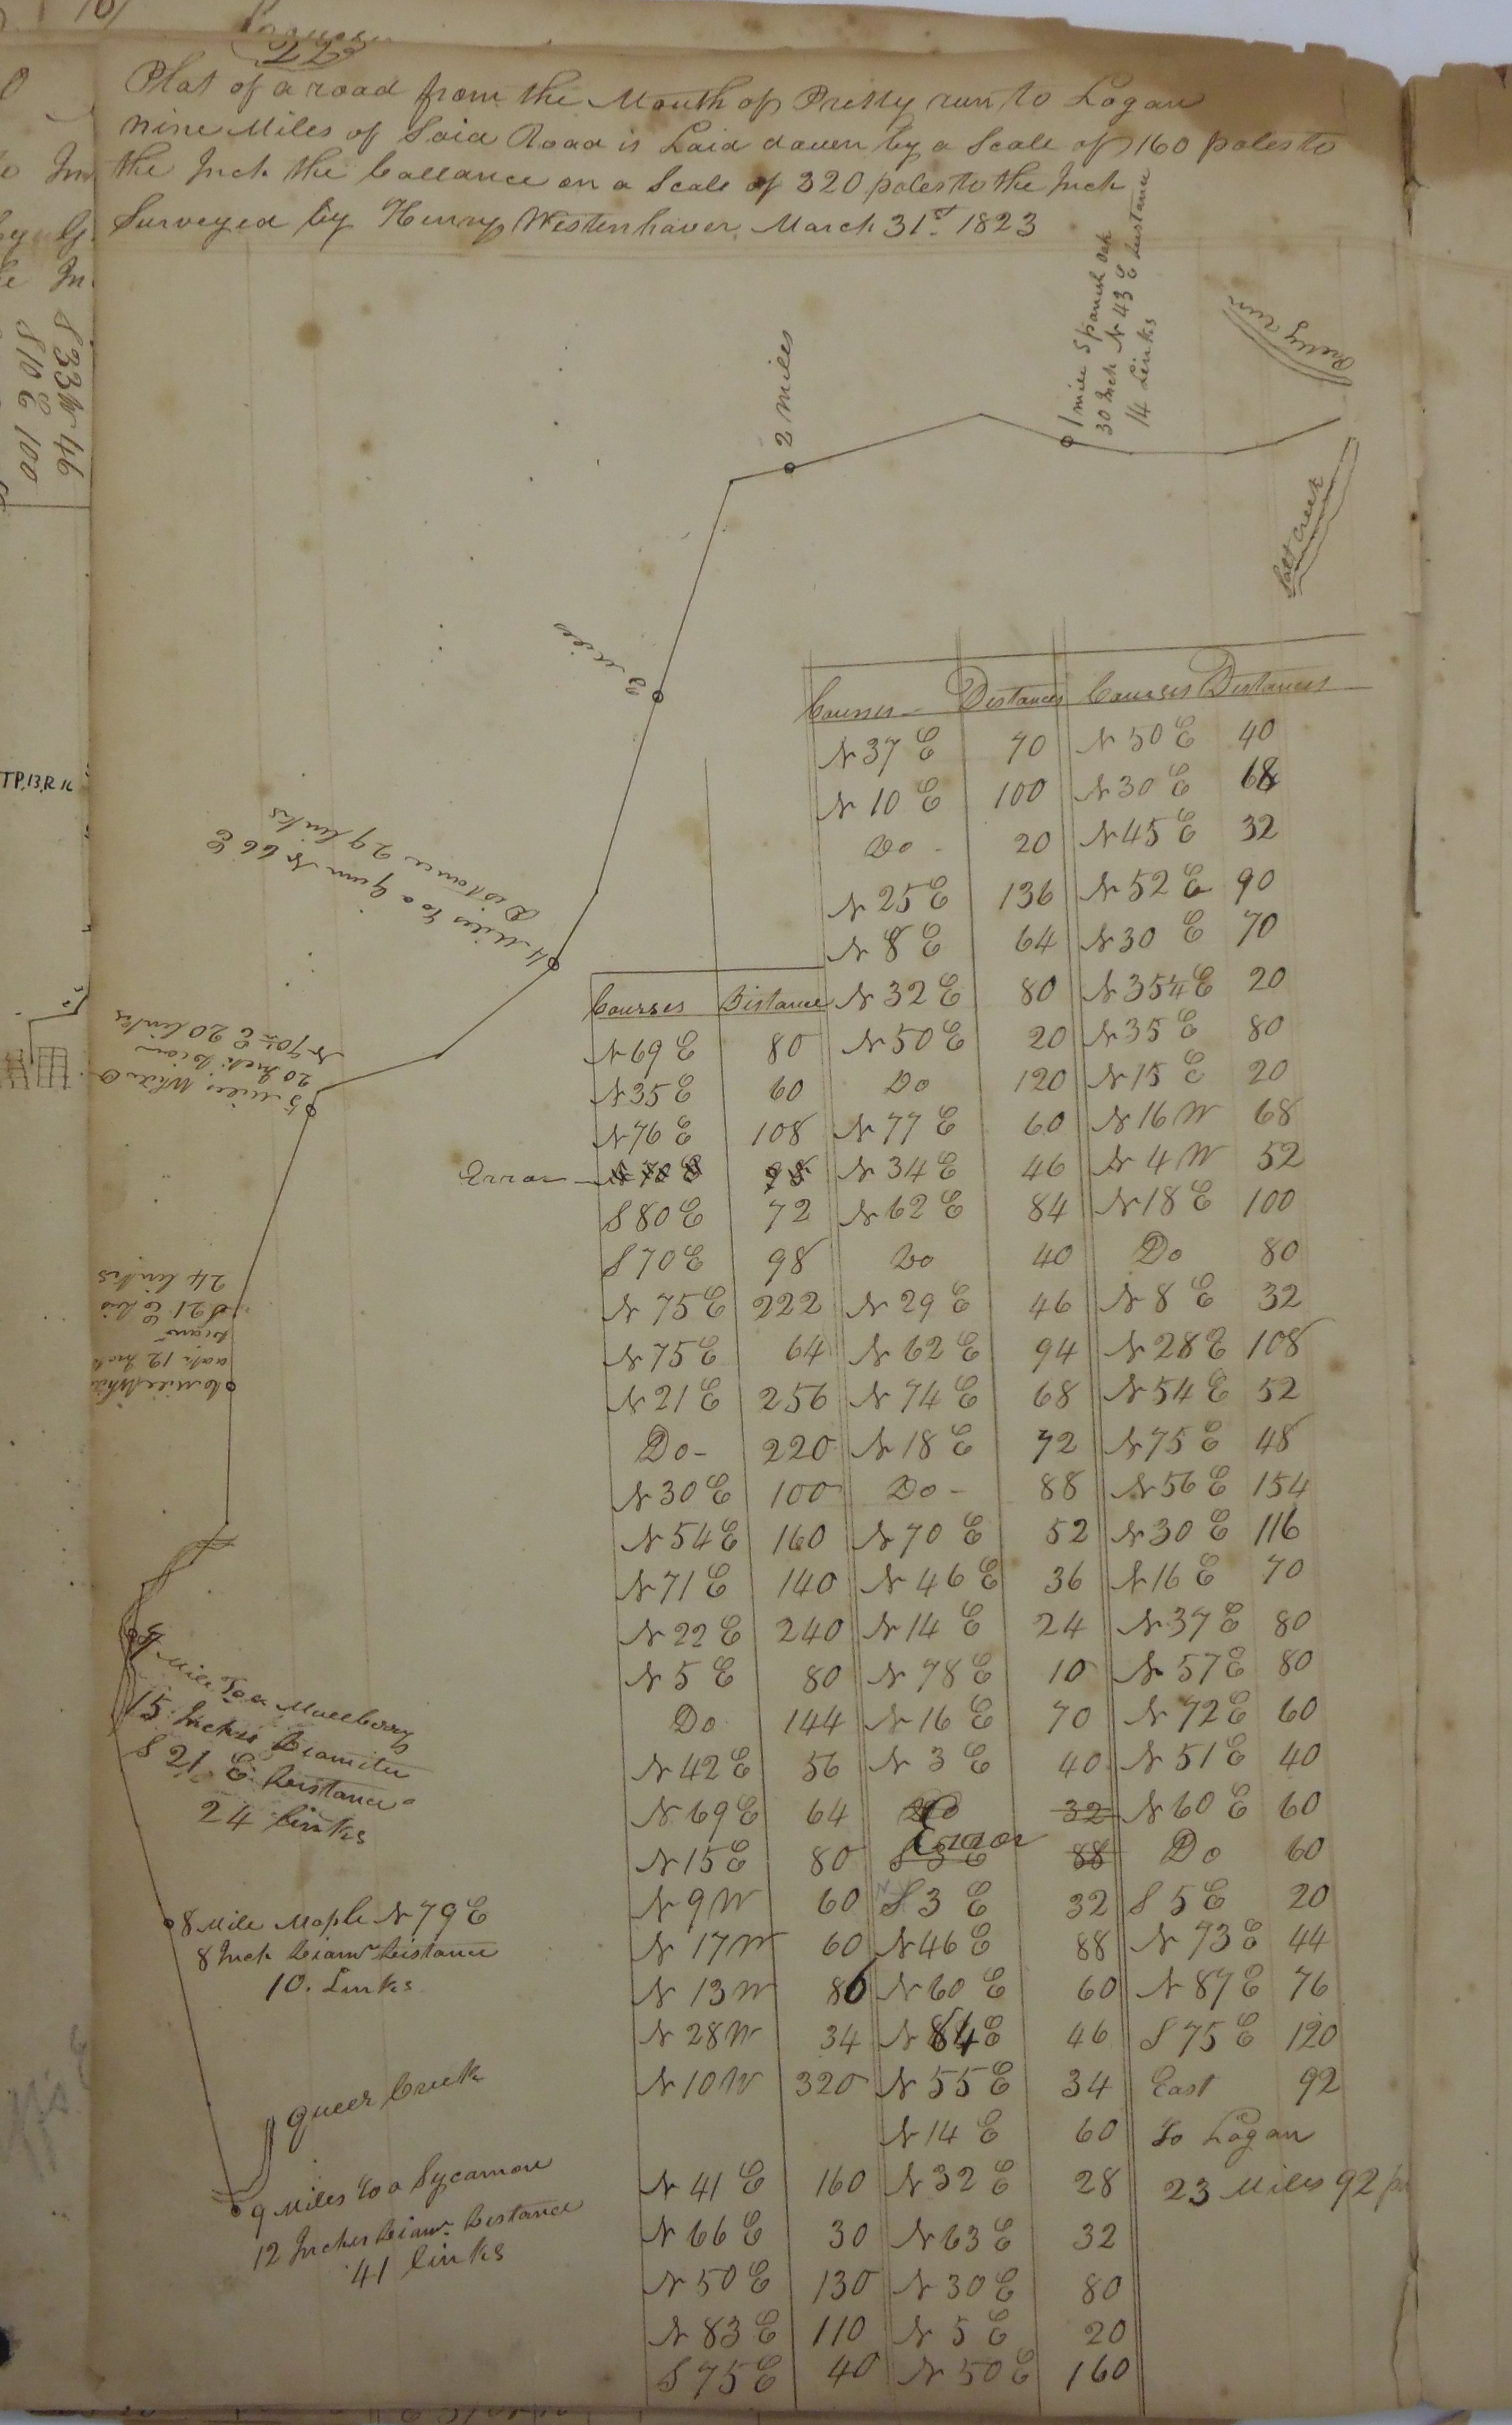 Plat of a road from the Mouth of Pretty run to Logan
nine Miles of Said Road is Laid down by a Scale of 160 poles to
the Inch the ballance on a Scale of 320 poles to the Inch
Surveyed by Henry Westenhaver March 31st 1823
Pretty run
Salt Creek
1 mile Spanish oak
30 Inch N 43 E Distance
14 Links
2 miles
3 miles
4 Miles to a Gum N 66 E
Distance 29 links
5 Miles White O
20 Inch Diam
N 70 E 20 links
6 Miles White
oak 12 Inch
Diam
S 21 E Dis
24 links
7 Mile To a Mulberry
15 Inches Diamiter
S 21 E Distance
24 links
8 Mile Maple N 79 E
8 Inch Diamr Distance
10. Links
Queer Creek
9 Miles to a Sycamore
12 Inches Diamr. Distance
41 links
Courses Distance
N 69 E 80
N 35 E 60
N 76 E 108
Error N 70 E 98
S 80 E 72
S 70 E 98
N 75 E 222
N 75 E 64
N 21 E 256
Do - 220
N 30 E 100
N 54 E 160
N 71 E 140
N 22 E 240
N 5 E 80
Do 144
N 42 E 56
N 69 E 64
N 15 E 80
N 9 W 60
N 17 W 60
N 13 W 86
N 28 W 34
N 10 W 320
N 41 E 160
N 66 E 30
N 50 E 130
N 83 E 110
S 75 E 40
Courses Distances
N 37 E 70
N 10 E 100
Do - 20
N 25 E 136
N 8 E 64
N 32 E 80
N 50 E 20
Do 120
N 77 E 60
N 34 E 46
N 62 E 84
Do 40
N 29 E 46
N 62 E 94
N 74 E 68
N 18 E 72
Do - 88
N 70 E 52
N 46 E 36
N 14 E 24
N 78 E 10
N 16 E 70
N 3 E 40
Do 32
Error
S 3 E 88
S 3 E 32
N 46 E 88
N 60 E 60
N 84 E 46
N 55 E 34
N 14 E 60
N 32 E 28
N 63 E 32
N 30 E 80
N 5 E 20
N 50 E 160
Courses Distances
N 50 E 40
N 30 E 68
N 45 E 32
N 52 E 90
N 30 E 70
N 354 E 20
N 35 E 80
N 15 E 20
N 16 W 68
N 4 W 52
N 18 E 100
Do 80
N 8 E 32
N 28 E 108
N 54 E 52
N 75 E 48
N 56 E 154
N 30 E 116
N 16 E 70
N 37 E 80
N 57 E 80
N 72 E 60
N 51 E 40
N 60 E 60
Do 60
S 5 E 20
N 73 E 44
N 87 E 76
S 75 E 120
East 92
To Logan
23 Miles 92 p
S 33 W 46
S 10 E 100
TP,13,R 16